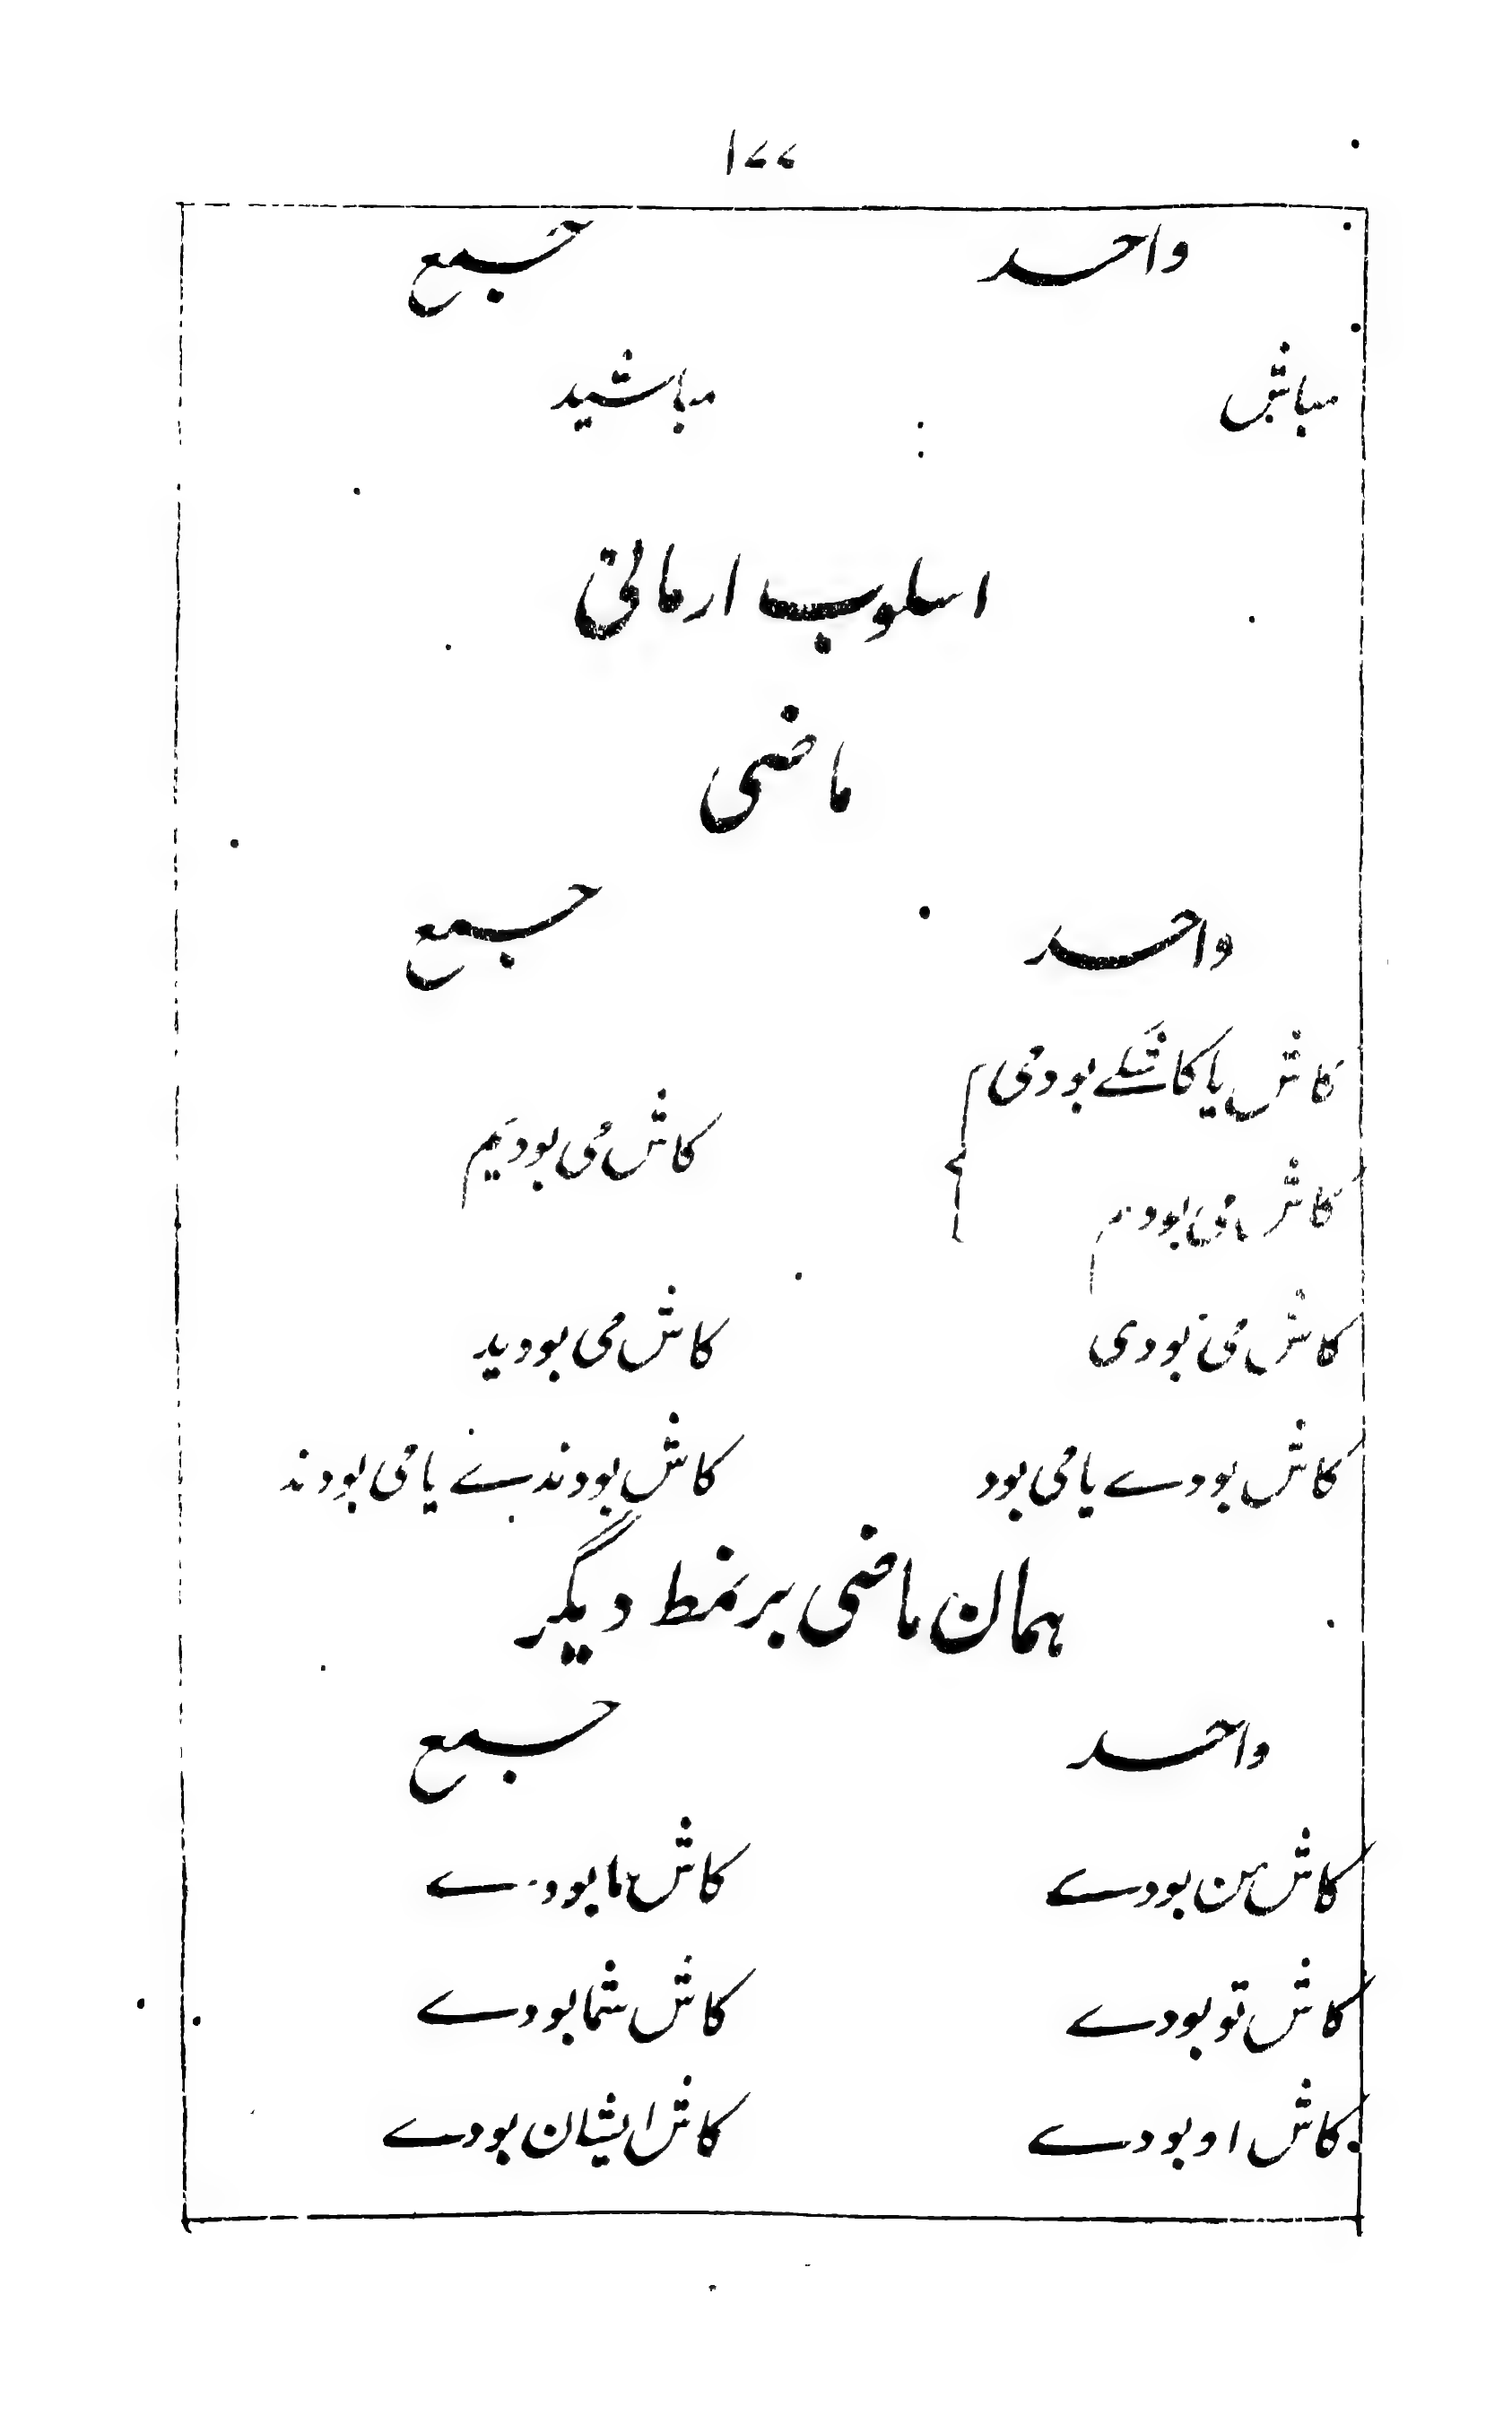 ۱۷۷
واحد جمع
مباش مباشید
اسلوب ارمانی
ماضی
واحد جمع
کاش یا کاشکے بودمی
کاش می بودیم
کاش می بودم
کاش می بودی کاش می بودید
کاش بودے یا می بود کاش بودندے یا می بودند
همان ماضی بر نمط دیگر
واحد جمع
کاش من بودے کاش ما بودے
کاش تو بودے کاش شما بودے
کاش او بودے کاش ایشان بودے